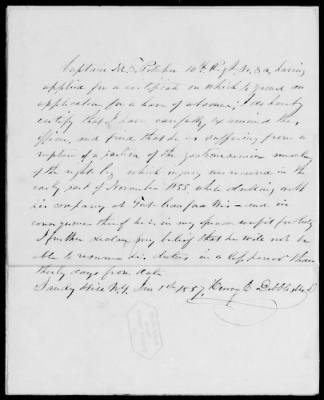 Captain M. T. Potter 10th Regt. U.S.A. having
applied for a certificate on which to ground an
application for a leave of absence, I do hereby
certify that I have carefully examined this
officer, and find that he is suffering from a
rupture of a portion of the gastrocnemius muscle
of the right leg, which injury was received in the
early part of November 1855, while drilling with
his company at Fort Crawford Wis - and in
consequence thereof he is, in my opinion unfit for duty
I further declare my belief that he will not be
able to resume his duties in a less period than
thirty days from date
Sandy Hill N.Y. Jan 1st 1857. Henry C.